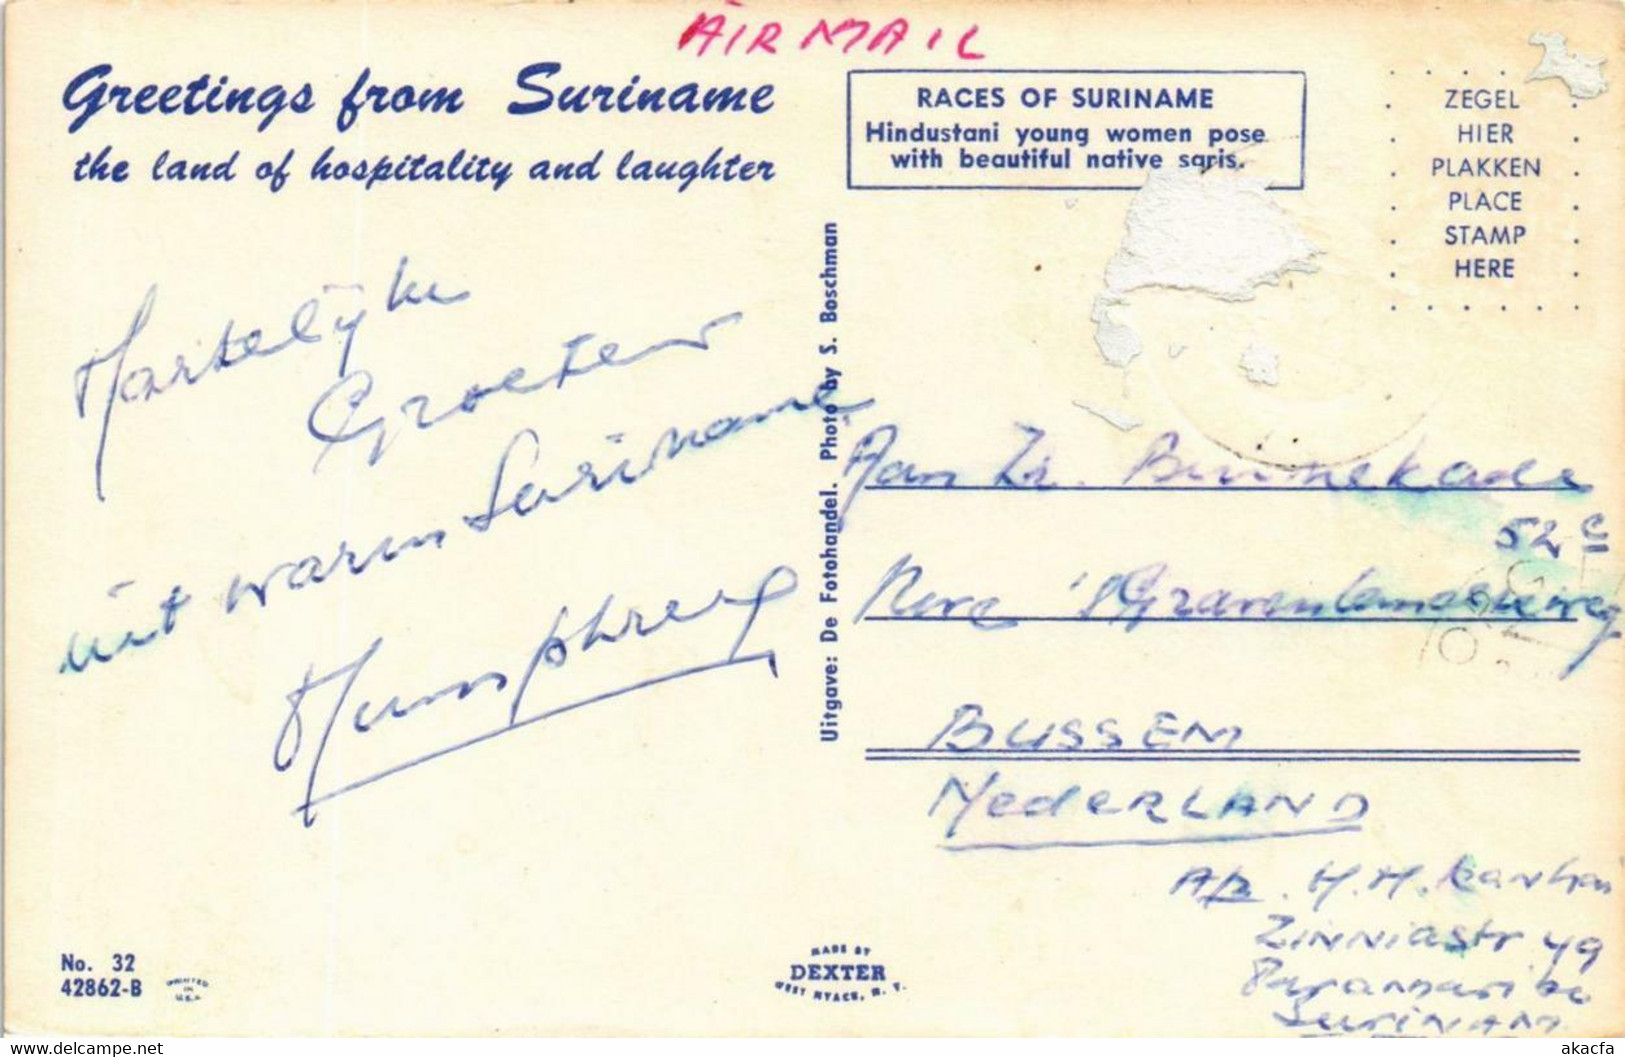 AIRMAIL
Greetings from Suriname
the land of hospitality and laughter
RACES OF SURINAME
Hindustani young women pose
with beautiful native saris.
ZEGEL
HIER
PLAKKEN
PLACE
STAMP
HERE
Hartelijke
Groeten
uit warm Suriname
Humphrey
Uitgave: De Fotohandel. Photo by S. Boschman
Jan
52
'sGravenlandseweg
BUSSEM
NederLAND
H.H.
ZINNIAstr 49
Paramaribo
SURINAM
No. 32
42862-B
PRINTED
IN
U.S.A.
MADE BY
DEXTER
WEST NYACK, N. Y.
akacfa